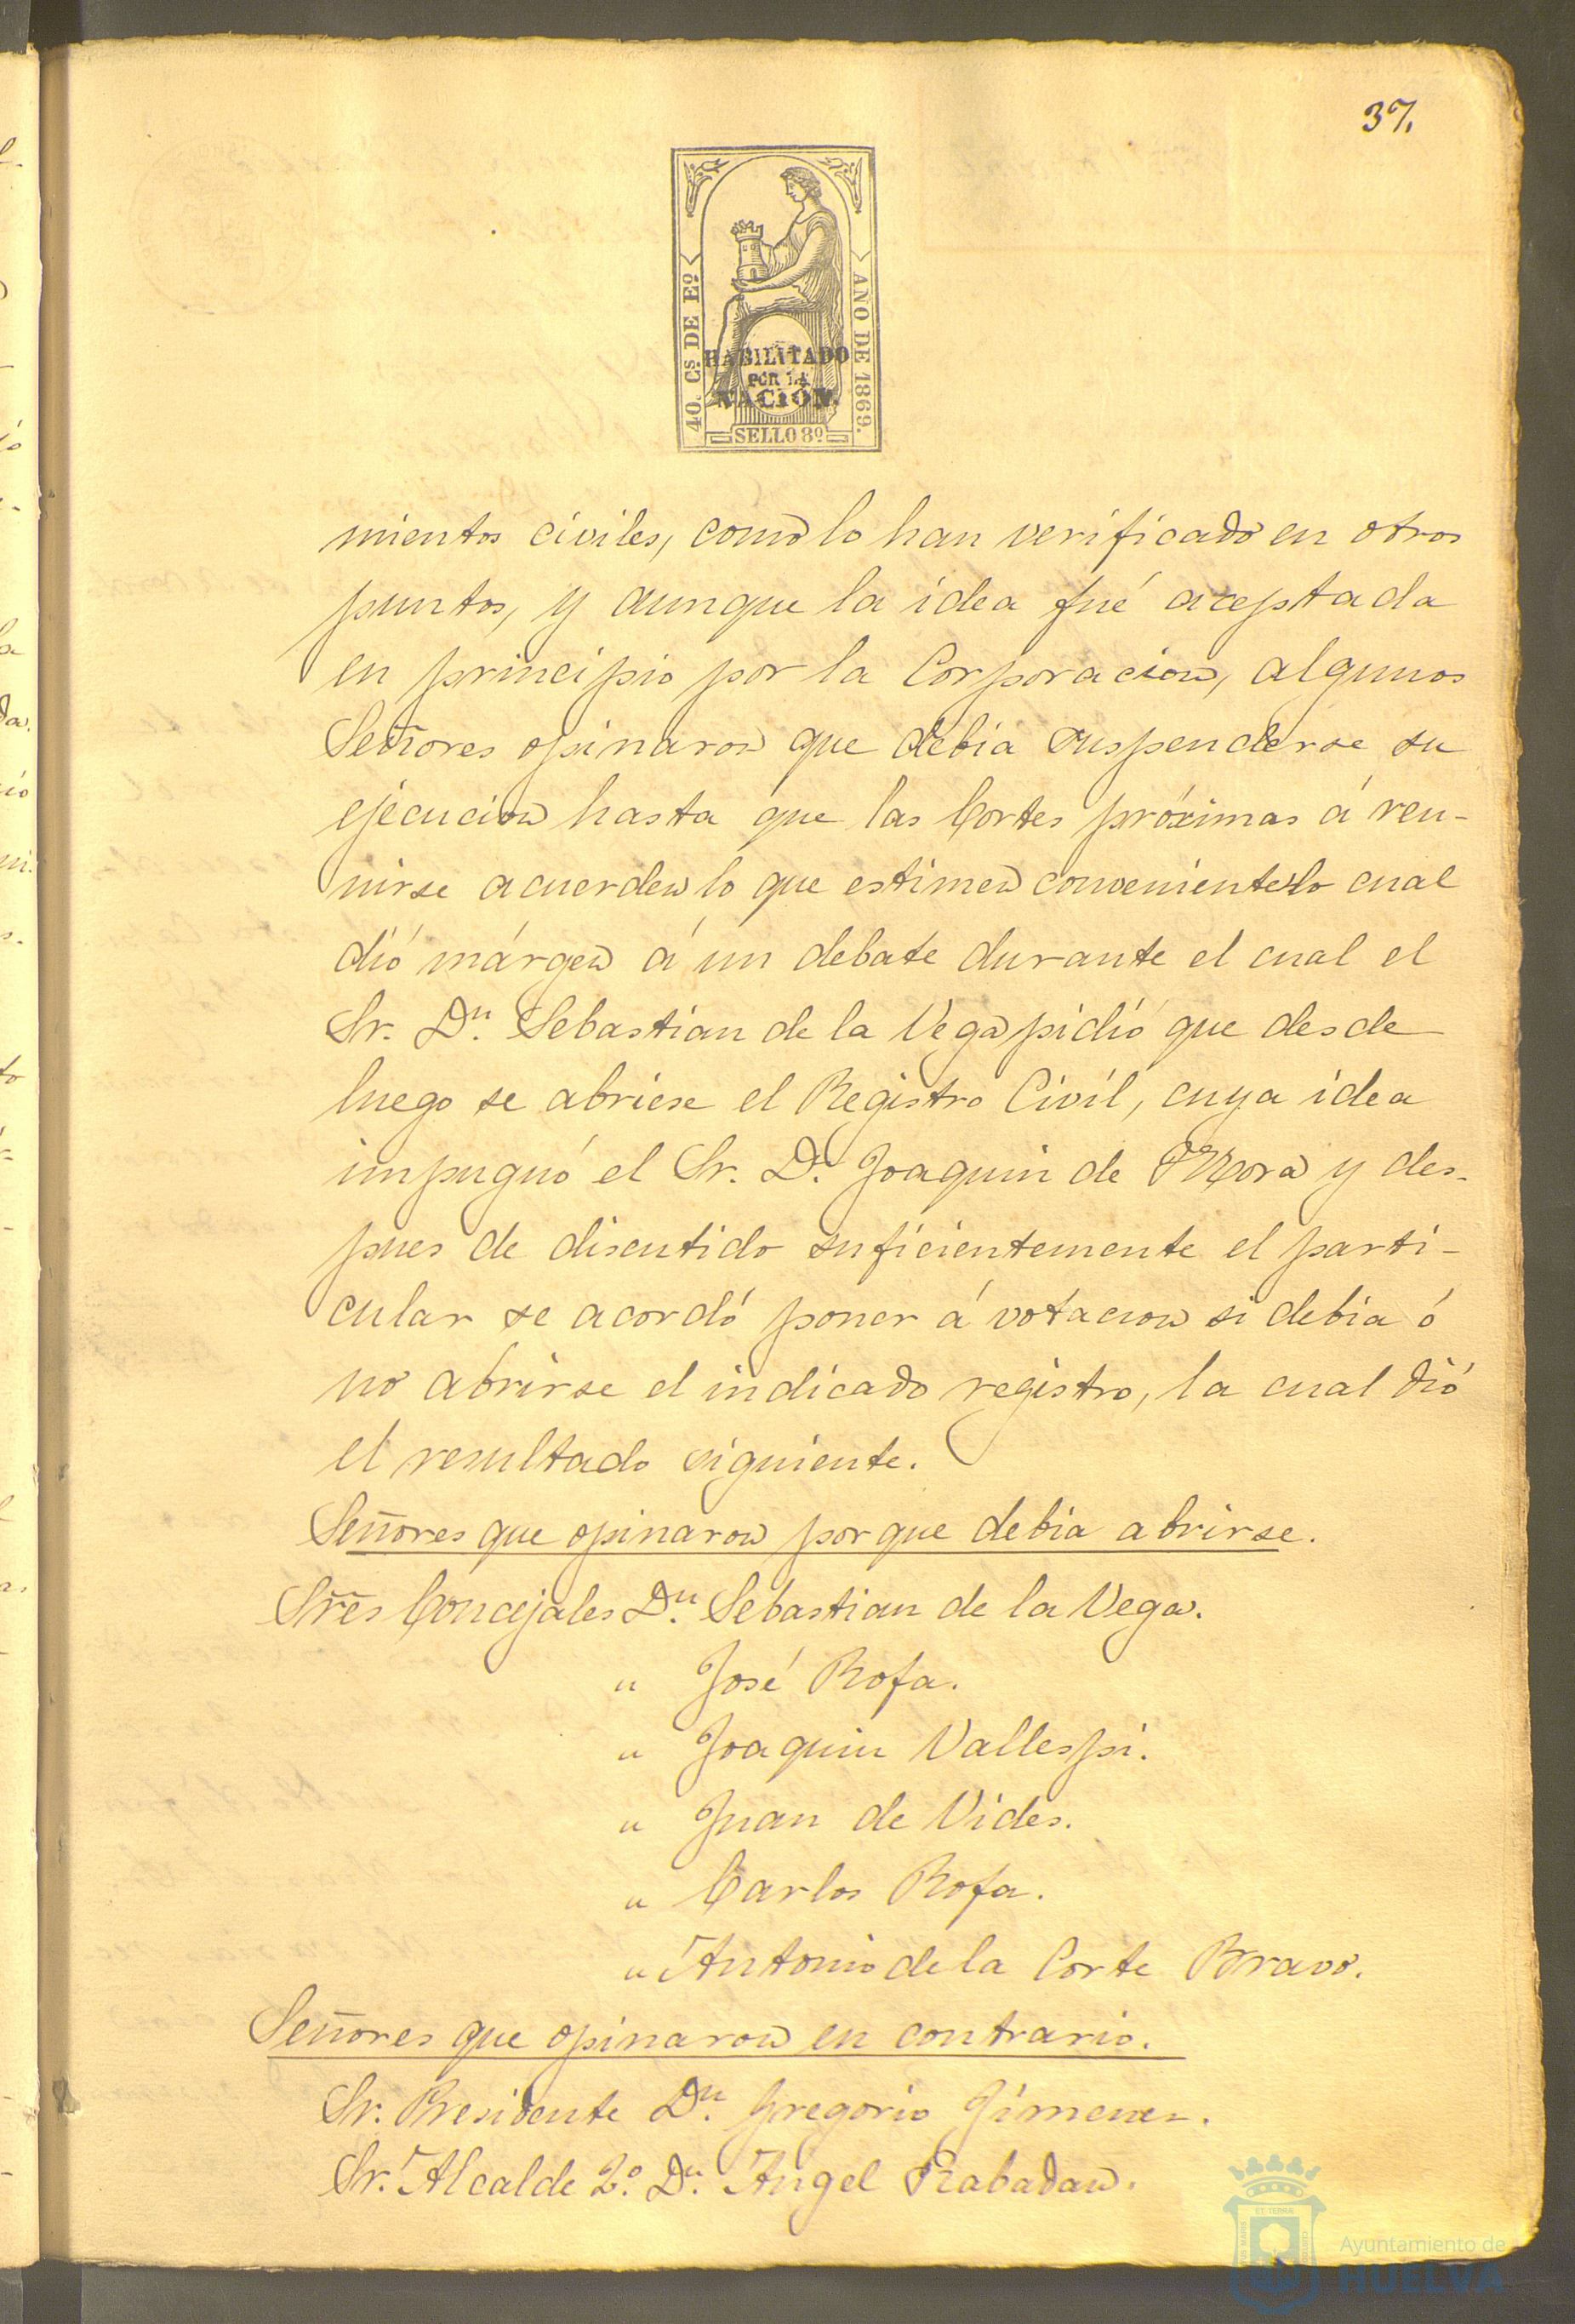 37.
40. Cs. DE Eº
AÑO DE 1869.
HABILITADO
POR LA
NACION.
SELLO 8º
mientos civiles, como lo han verificado en otros
puntos, y aunque la idea fué aceptada
en principio por la Corporacion, algunos
Señores opinaron que debia suspenderse su
ejecucion hasta que las Cortes próximas á reu-
nirse acuerden lo que estimen conveniente lo cual
dió márgen á un debate durante el cual el
Sr. Dn. Sebastian de la Vega pidió que desde
luego se abriese el Registro Civil, cuya idea
impugnó el Sr. D. Joaquin de Mora y des-
pues de discutido suficientemente el parti-
cular se acordó poner á votacion si debia ó
no abrirse el indicado registro, la cual dió
el resultado siguiente.
Señores que opinaron por que debia abrirse.
Sres Concejales Dn. Sebastian de la Vega.
" José Rofa.
" Joaquin Vallespi.
" Juan de Vides.
" Carlos Rofa.
" Antonio de la Corte Bravo.
Señores que opinaron en contrario.
Sr. Presidente Dn. Gregorio Jimenez.
Sr. Alcalde 2º. Dn. Angel Rabadan.
Ayuntamiento de
HUELVA